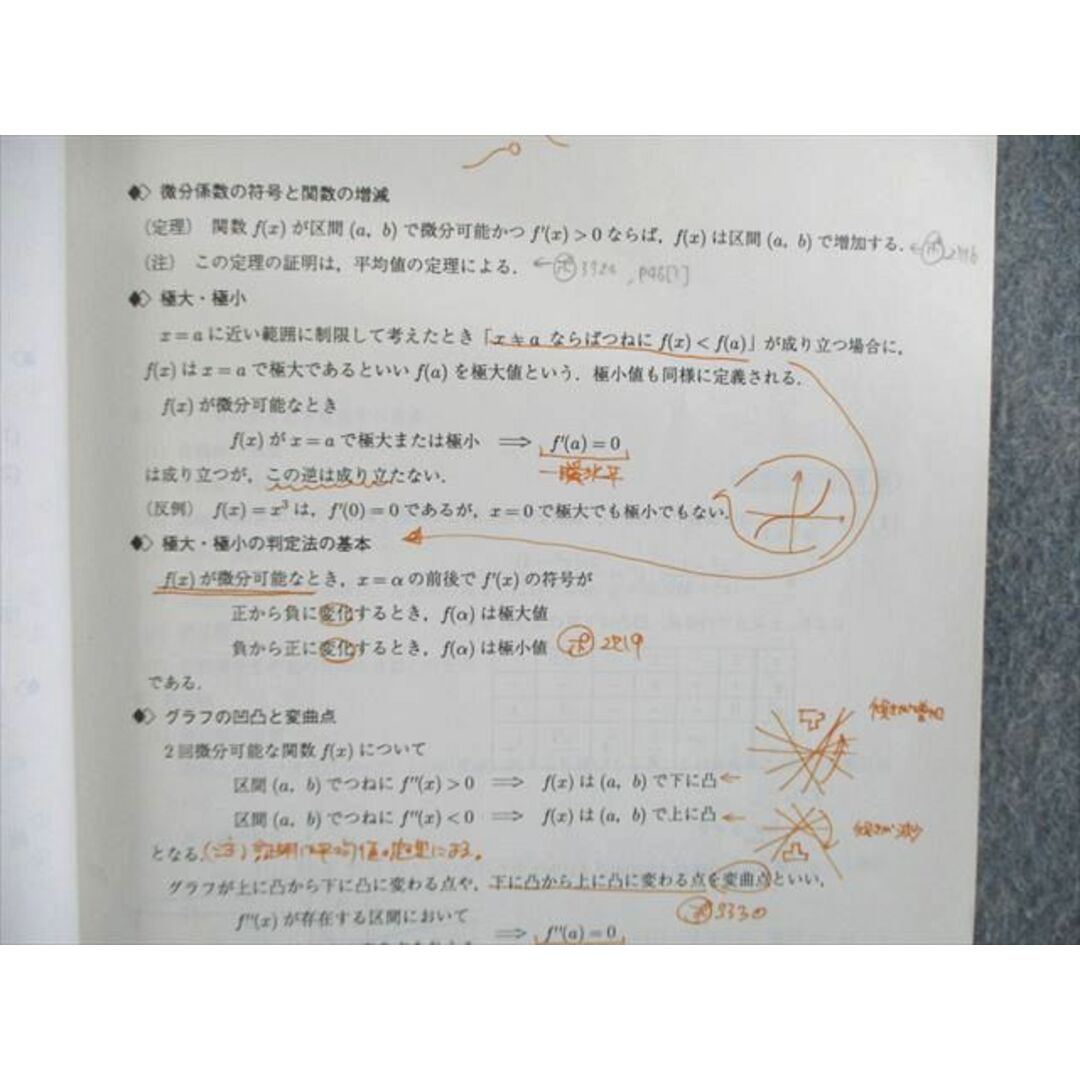 微分係数の符号と関数の増減
(定理) 関数 f(x) が区間 (a, b) で微分可能かつ f'(x) > 0 ならば, f(x) は区間 (a, b) で増加する.
(注) この定理の証明は, 平均値の定理による.
極大・極小
x = a に近い範囲に制限して考えたとき「x ≠ a ならばつねに f(x) < f(a)」が成り立つ場合に,
f(x) は x = a で極大であるといい f(a) を極大値という. 極小値も同様に定義される.
f(x) が微分可能なとき
f(x) が x = a で極大または極小 ⟹ f'(a) = 0
一瞬水平
は成り立つが, この逆は成り立たない.
(反例) f(x) = x³ は, f'(0) = 0 であるが, x = 0 で極大でも極小でもない.
極大・極小の判定法の基本
f(x) が微分可能なとき, x = α の前後で f'(x) の符号が
正から負に変化するとき, f(α) は極大値
負から正に変化するとき, f(α) は極小値
である.
グラフの凹凸と変曲点
傾きが増加
2回微分可能な関数 f(x) について
区間 (a, b) でつねに f''(x) > 0 ⟹ f(x) は (a, b) で下に凸
区間 (a, b) でつねに f''(x) < 0 ⟹ f(x) は (a, b) で上に凸
傾きが減少
となる. (注) 証明は平均値の定理による。
グラフが上に凸から下に凸に変わる点や, 下に凸から上に凸に変わる点を変曲点といい,
f''(x) が存在する区間において
⟹ f''(a) = 0